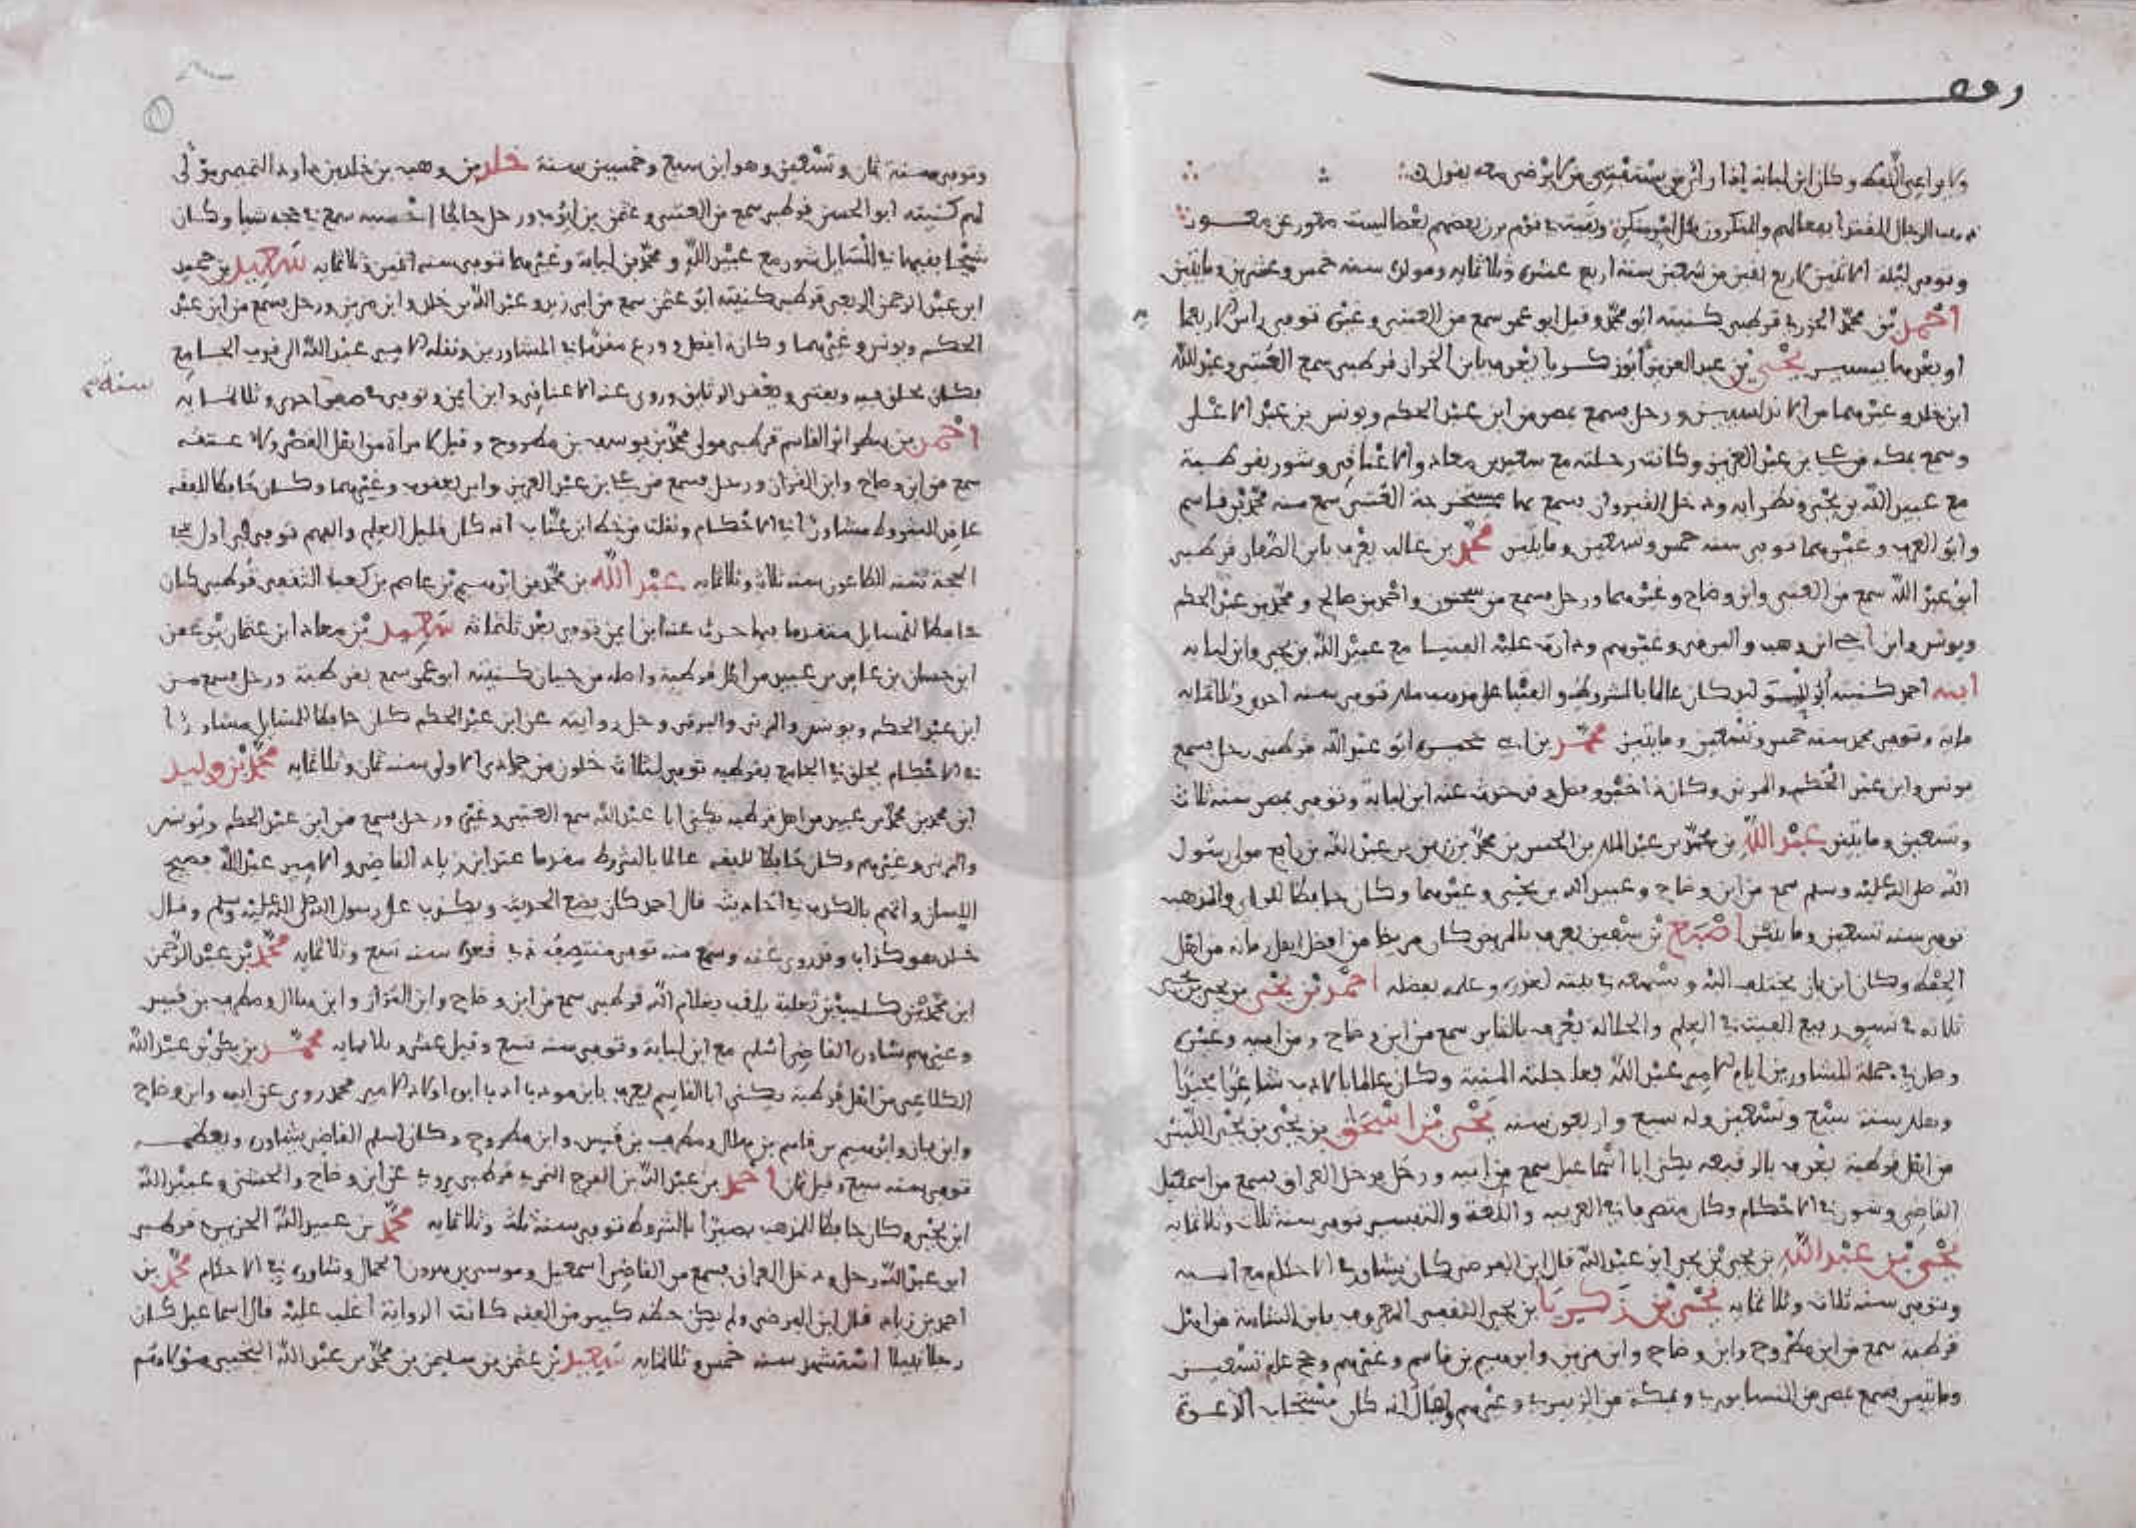 وقف
ولا يراعي اللفظ وكان ابن لبابة إذا رأى من يستفتي من لا يرضى معه يقول
ذهب الرجال المقتدا بفعالهم والمنكرون لكل أمر منكر وبقيت في قوم يزين بعضهم بعضا ليستر معور عن معور
وتوفي ليلة الاثنين لأربع بقين من شعبان سنة أربع عشرة وثلاثمائة ومولده سنة خمس وعشرين ومايتين
أحمد بن محمد قرطبي كنيته أبو محمد وقيل أبو عمر سمع من العتبي وغيره توفي رأس الأربعمائة
أو بعدها بيسير يحيى بن عبد العزيز أبو زكريا يعرف بابن الخراز قرطبي سمع العتبي وعبد الله
ابن خلد وغيرهما من الاندلسيين ورحل فسمع بمصر من ابن عبد الحكم ويونس بن عبد الاعلى
وسمع بمكة من علي بن عبد العزيز وكانت رحلته مع سعيد بن معاذ والاعناقي وشور بقرطبة
مع عبيد الله بن يحيى ونظرايه ودخل القيروان فسمع بها مستخرجة العتبي سمع منه محمد بن قاسم
وأبو العرب وغيرهما توفي سنة خمس وتسعين ومايتين محمد بن غالب يعرف بابن الصفار قرطبي
أبو عبد الله سمع من العتبي وابن وضاح وغيرهما ورحل فسمع من سحنون وأحمد بن صالح ومحمد بن عبد الحكم
ويونس وابن أخي ابن وهب والبرقي وغيرهم ودارت عليه الفتيا مع عبيد الله بن يحيى وابن لبابة
ابنه أحمد كنيته أبو كان عالما بالشروط والفتيا على مذهب ملك توفي سنة احدى وثلاثمائة
وتوفي محمد سنة خمس وتسعين ومايتين محمد بن أبي أبو عبد الله قرطبي رحل فسمع
يونس وابن عبد الحكم والمزني وكان ذا خير وفضل وقد حدث عنه ابن لبابة وتوفي بمصر سنة ثلاث
وتسعين ومايتين عبد الله بن محمد بن عبد الملك بن الحسن بن محمد بن زريق بن عبيد الله بن رافع مولى رسول
الله صلى الله عليه وسلم سمع من ابن وضاح وعبيد الله بن يحيى وغيرهما وكان حافظا للرأي والمذهب
توفي سنة تسعين ومايتين أصبغ بن سفين يعرف بالمريد كان مريضا من أفضل أهل زمانه من أهل
الحفظ وكان ابن باز يختلف اليه ويسمعه في بيته لعذره وعلمه بفضله أحمد بن يحيى بن يحيى بن يحيى
ثلاثة في نسق ربيع البيت في العلم والجلالة يعرف بالفاسي سمع من ابن وضاح ومن أبيه وغيره
وصار في جملة المشاورين أيام الامير عبد الله فعاجلته المنية وكان عالما بالادب شاعرا مجيدا
وهلك سنة سبع وتسعين وله سبع وأربعون سنة يحيى بن اسحاق بن يحيى بن يحيى الليثي
من أهل قرطبة يعرف بالرقيعة يكنى أبا اسماعيل سمع من أبيه ورحل فدخل العراق فسمع من اسمعيل
القاضي وشور في الاحكام وكان متصرفا في العربية واللغة والتفسير توفي سنة ثلاث وثلاثمائة
يحيى بن عبد الله بن يحيى بن يحيى أبو عبد الله قال ابن الفرضي كان يشاور في الاحكام مع أبيه
وتوفي سنة ثلاث وثلاثمائة يحيى بن زكرياء بن يحيى الثقفي المعروف بابن الشامة من أهل
قرطبة سمع من ابن مطروح وابن وضاح وابن مزين وابرهيم بن قاسم وغيرهم وحج عام تسعين
ومايتين فسمع بمصر من النسابوري وبمكة من الزبيري وغيرهم ويقال انه كان مستجاب الدعوة
وتوفي سنة ثمان وتسعين وهو ابن سبع وخمسين سنة خلد بن وهب بن خلد بن داود التميمي مولى
لهم كنيته أبو الحسن قرطبي سمع من العتبي وعثمن بن أيوب ورحل حاجا أحسبه سمع في حجه شيا وكان
شيخا فقيها في المسايل شور مع عبيد الله ومحمد بن لبابة وغيرهما توفي سنة اثنين وثلاثمائة سعيد بن حميد
ابن عبد الرحمن الربعي قرطبي كنيته أبو عثمن سمع من ابن وعبد الله بن خلد وابن مزين ورحل فسمع من ابن عبد
الحكم ويونس وغيرهما وكان ذا فضل وورع مقدما في المشاورين ونقله الامير عبد الله الى قرب الجامع
فكان يحلق فيه ويفتي ويعقد الوثايق وروى عنه الاعناقي وابن أيمن وتوفي في صفر احدى وثلاثماية
سنة
أحمد بن بيطر أبو القاسم قرطبي مولى محمد بن يوسف بن مطروح وقيل لامرأة من أهل القصر ولاء عتقه
سمع من ابن وضاح وابن القزاز ورحل فسمع من علي بن عبد العزيز وابن يعقوب وغيرهما وكان حافظا للفقه
عاقدا للشروط مشاورا في الاحكام ونقلت من خط ابن عتاب أنه كان قليل العلم والفهم توفي في أول ذي
الحجة سنة الطاعون سنة ثلاث وثلاثمائة عبد الله بن محمد بن ابرهيم بن عاصم بن كعب الثقفي قرطبي كان
حافظا للمسايل متقدما فيها حدث عنه ابن أيمن توفي بعد ثلثمائة سعيد بن معاذ ابن عثمان بن عثمن
ابن حسان بن عامر بن عبيد من أهل قرطبة وأصله من جيان كنيته أبو عمر سمع بقرطبة ورحل فسمع من
ابن عبد الحكم ويونس والمزني والبرقي وجل روايته عن ابن عبد الحكم كان حافظا للمسايل مشاورا
في الاحكام يحلق في الجامع بقرطبة توفي لثلاث خلون من جمادى الاولى سنة ثمان وثلاثمائة محمد بن وليد
ابن محمد بن محمد بن عبيد من أهل قرطبة يكنى أبا عبد الله سمع العتبي وغيره ورحل فسمع من ابن عبد الحكم ويونس
والمزني وغيرهم وكان حافظا للفقه عالما بالشروط مقدما عند ابن زياد القاضي والامير عبد الله فصيح
اللسان واتهم بالكذب في أحاديث قال أحمد كان يضع الحديث ويكذب على رسول الله صلى الله عليه وسلم وقال
خلد هو كذاب وقد روى عنه وسمع منه توفي منتصف ذي قعدة سنة تسع وثلاثمائة محمد بن عبد الرحمن
ابن محمد بن كليب بن ثعلبة يلقب بغلام الله قرطبي سمع من ابن وضاح وابن القزاز وابن هلال ومطرف بن قيس
وغيرهم شاوره القاضي أسلم مع ابن لبابة وتوفي سنة تسع وقيل عشر وثلاثمائة محمد بن بكر بن عبد الله
الكلاعي من أهل قرطبة يكنى أبا القاسم يعرف بابن مؤدبا أدبا ابن أولاد الامير محمد روى عن أبيه وابن وضاح
وابن باز وابرهيم بن قاسم بن هلال ومطرف بن قيس وابن مطروح وكان أسلم القاضي يشاوره ويعظمه
توفي سنة سبع وقيل ثمان أحمد بن عبد الله بن الفرج النمري قرطبي يروي عن ابن وضاح والخشني وعبيد الله
ابن يحيى وكان حافظا للمذهب بصيرا بالشروط توفي سنة ثلث وثلاثمائة محمد بن عبيد الله قرطبي
أبو عبد الله رحل ودخل العراق فسمع من القاضي اسمعيل وموسى بن هرون الحمال وشاوره في الاحكام محمد بن
أحمد بن زياد قال ابن الفرضي ولم يكن حظه كبير من الفقه كانت الرواية أغلب عليه قال اسماعيل كان
رجلا نبيلا استشهد سنة خمس وثلاثمائة سعيد بن عثمن بن سليمن بن محمد بن عبد الله التجيبي مولاهم